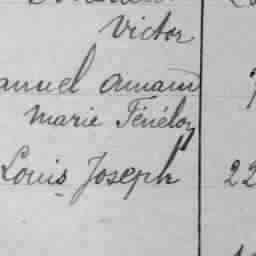 Victor
anuel Amand
Marie Fénélon
Louis Joseph 22